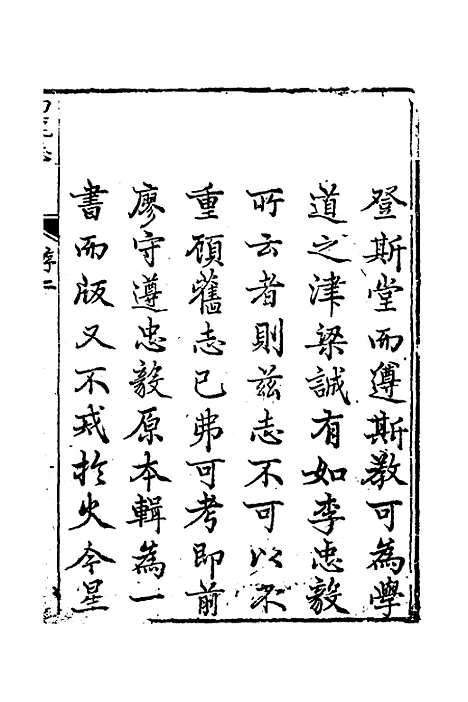 登斯堂而遵斯教可為學
道之津梁誠有如李忠毅
所云者則茲志不可以不
重顧舊志已弗可考即前
廖守遵忠毅原本輯為一
書而版又不戒於火今星
序二